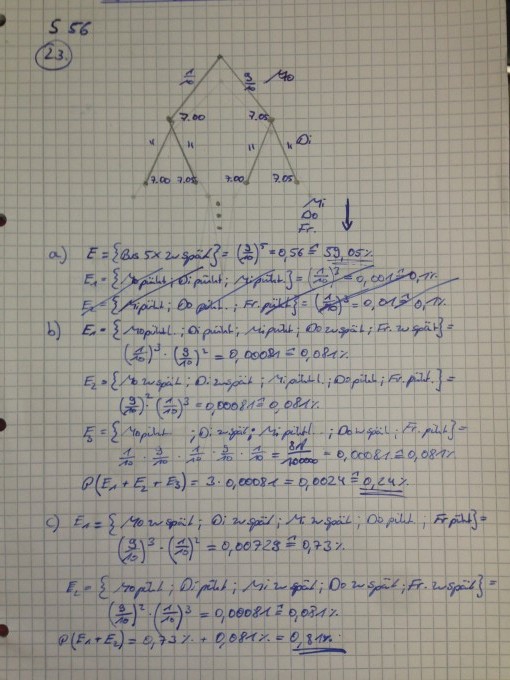 S 56
23.
1/10 9/10 Mo
7.00 7.05
" " " " Di
7.00 7.05 7.00 7.05
Mi
Do
Fr.
a) E = {Bus 5x zu spät} = (9/10)^5 = 0,56 ≙ 59,05%
E1 = {Mo pünkt; Di pünkt; Mi pünkt} = (1/10)^3 = 0,001 ≙ 0,1%
E2 = {Mi pünkt; Do pünkt..; Fr. pünkt} = (1/10)^3 = 0,001 ≙ 0,1%
b) E1 = {Mo pünkt..; Di pünkt; Mi pünkt; Do zu spät; Fr. zu spät} =
(1/10)^3 · (9/10)^2 = 0,00081 ≙ 0,081%
E2 = {Mo zu spät; Di zu spät; Mi pünkt..; Do pünkt; Fr. pünkt.} =
(9/10)^2 · (1/10)^3 = 0,00081 ≙ 0,081%
E3 = {Mo pünkt ; Di zu spät; Mi pünkt..; Do zu spät; Fr. pünkt} =
1/10 · 9/10 · 1/10 · 9/10 · 1/10 = 81/100000 = 0,00081 ≙ 0,081%
P(E1 + E2 + E3) = 3 · 0,00081 = 0,0024 ≙ 0,24%
c) E1 = {Mo zu spät; Di zu spät; Mi zu spät; Do pünkt.; Fr pünkt} =
(9/10)^3 · (1/10)^2 = 0,00729 ≙ 0,73%
E2 = {Mo pünkt; Di pünkt; Mi zu spät; Do zu spät; Fr. zu spät} =
(9/10)^2 · (1/10)^3 = 0,00081 ≙ 0,081%
P(E1 + E2) = 0,73% + 0,081% = 0,81%